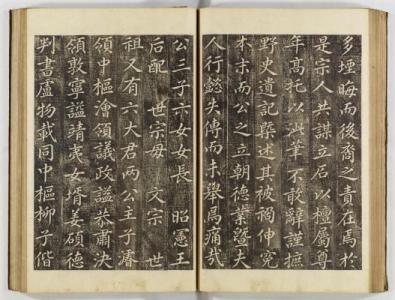 多堙晦而後裔之責在焉於
是宗人共謀立石以檀屬尊
年高托以泚筆不敢辭謹摭
野史遺記檃述其被禍伸寃
本末而公之立朝德業暨夫
人行懿失傳而未舉焉痛哉
公三子六女女長 昭憲王
后配 世宗母 文宗 世
祖又有六大君兩公主子濬
領中樞澮領議政謚恭肅決
領敦寧謚靖夷女壻姜碩德
判書盧物載同中樞柳子偕